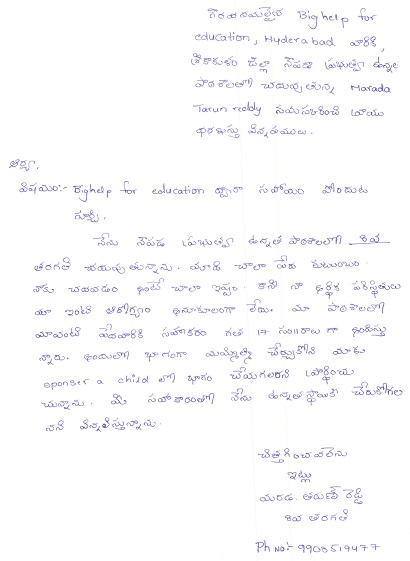 గౌరవనీయులైన Bighelp for
education, Hyderabad వారికి,
శ్రీకాకుళం జిల్లా నేపడ ప్రభుత్వ ఉన్నత
పాఠశాలలో చదువుతున్న Marada
Tarun reddy నమస్కరించి వ్రాయు
విన్నపములు.
ఆర్యా,
విషయం:- Bighelp for education ద్వారా సహాయం పొందుట
గూర్చి.
నేను నేపడ ప్రభుత్వ ఉన్నత పాఠశాలలో 8వ
తరగతి చదువుతున్నాను. మాది చాలా పేద కుటుంబం.
నాకు చదవడం అంటే చాలా ఇష్టం. కాని నా ఆర్థిక పరిస్థితులు
మా ఇంటి ఆరోగ్యం అనుకూలంగా లేదు. మా పాఠశాలలో
మావంటి పేదవారికి సహకారం గత 17 సం॥రాలుగా అందిస్తు
న్నారు. ఇందులో భాగంగా మమ్మల్ని చేర్చుకొని మాకు
sponser a child లో భాగం చేయగలరని ప్రార్థించు
చున్నాను. మీ సహకారంతో నేను ఉన్నత స్థాయికి చేరుకోగల
నని విన్నవిస్తున్నాను.
చిత్తగించవలెను
ఇట్లు
మరడ. తరుణ్ రెడ్డి
8వ తరగతి
Ph No:- 9908519477